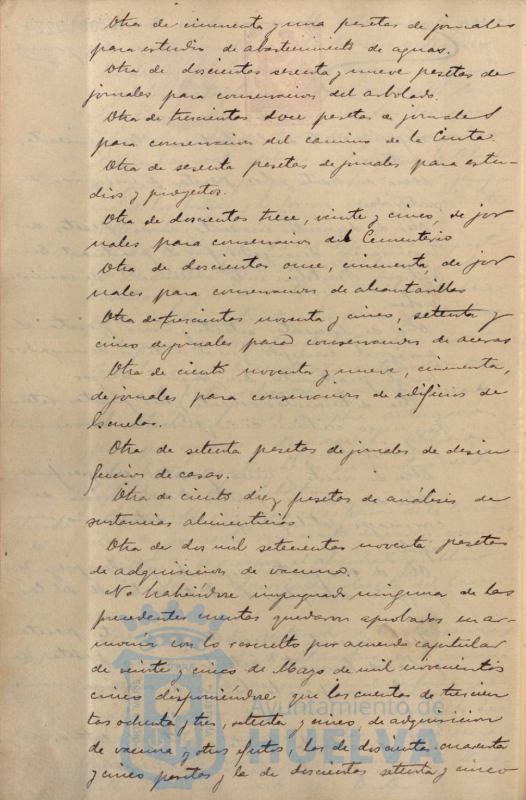 Otra de cincuenta y una pesetas de jornales
para estudio de abastecimiento de aguas.
Otra de doscientas sesenta y nueve pesetas de
jornales para conservacion del arbolado.
Otra de trescientas doce pesetas de jornales
para conservacion del camino de la Cinta.
Otra de sesenta pesetas de jornales para estu-
dios y proyectos.
Otra de doscientas trece, veinte y cinco, de jor
nales para conservacion del Cementerio
Otra de doscientas once, cincuenta, de jor
nales para conservacion de alcantarillas
Otra de trescientas noventa y cinco, setenta y
cinco de jornales para conservacion de aceras
Otra de ciento noventa y nueve, cincuenta,
de jornales para conservacion de edificios de
Escuelas.
Otra de setenta pesetas de jornales de desin-
feccion de casas.
Otra de ciento diez pesetas de análisis de
sustancias alimenticias
Otra de dos mil setecientas noventa pesetas
de adquisicion de vacuna.
No habiéndose impugnado ninguna de las
precedentes cuentas quedaron aprobadas en ar-
monía con lo resuelto por acuerdo capitular
de veinte y cinco de Mayo de mil novecientos
cinco disponiéndose que las cuentas de trescien
tas ochenta y tres, setenta y cinco de adquisicion
de vacuna y otros efectos, las de doscientas cuarenta
y cinco pesetas y la de doscientas setenta y cinco
Ayuntamiento de
HUELVA